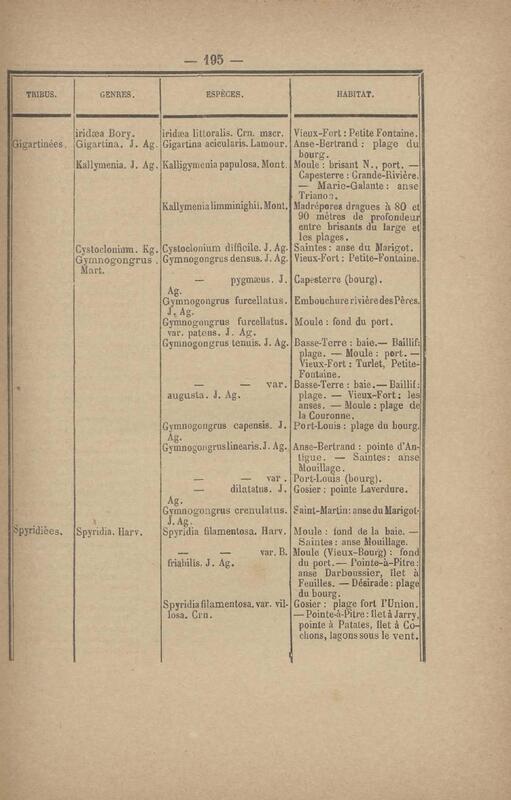 — 195 —
TRIBUS. GENRES. ESPÈCES. HABITAT.
iridæa Bory. iridæa littoralis. Crn. macr. Vieux-Fort : Petite Fontaine.
Gigartinées. Gigartina. J. Ag. Gigartina acicularis. Lamour. Anse-Bertrand : plage du
bourg.
Kallymenia. J. Ag. Kalligymenia papulosa. Mont. Moule : brisant N., port. —
Capesterre : Grande-Rivière.
— Marie-Galante : anse
Trianon.
Kallymenia limminighii. Mont. Madrépores dragues à 80 et
90 mètres de profondeur
entre brisants du large et
les plages.
Cystoclonium. Kg. Cystoclonium difficile. J. Ag. Saintes : anse du Marigot.
Gymnogongrus. Gymnogongrus densus. J. Ag. Vieux-Fort : Petite-Fontaine.
Mart.
— pygmæus. J. Capesterre (bourg).
Ag.
Gymnogongrus furcellatus. Embouchure rivière des Pères.
J. Ag.
Gymnogongrus furcellatus. Moule : fond du port.
var. patens. J. Ag.
Gymnogongrus tenuis. J. Ag. Basse-Terre : baie. — Baillif:
plage. — Moule : port. —
Vieux-Fort : Turlet, Petite-
Fontaine.
— — var. Basse-Terre : baie. — Baillif:
augusta. J. Ag. plage. — Vieux-Fort : les
anses. — Moule : plage de
la Couronne.
Gymnogongrus capensis. J. Port-Louis : plage du bourg.
Ag.
Gymnogongrus linearis. J. Ag. Anse-Bertrand : pointe d'An-
tigue. — Saintes : anse
Mouillage.
— — var. Port-Louis (bourg).
— dilatatus. J. Gosier : pointe Laverdure.
Ag.
Gymnogongrus crenulatus. Saint-Martin: anse du Marigot.
J. Ag.
Spyridiées. Spyridia. Harv. Spyridia filamentosa. Harv. Moule : fond de la baie. —
Saintes : anse Mouillage.
— — var. B. Moule (Vieux-Bourg) : fond
friabilis. J. Ag. du port. — Pointe-à-Pitre :
anse Darboussier, îlet à
Feuilles. — Désirade : plage
du bourg.
Spyridia filamentosa. var. vil- Gosier : plage fort l'Union.
losa. Crn. — Pointe-à-Pitre : îlet à Jarry,
pointe à Patates, îlet à Co-
chons, lagons sous le vent.